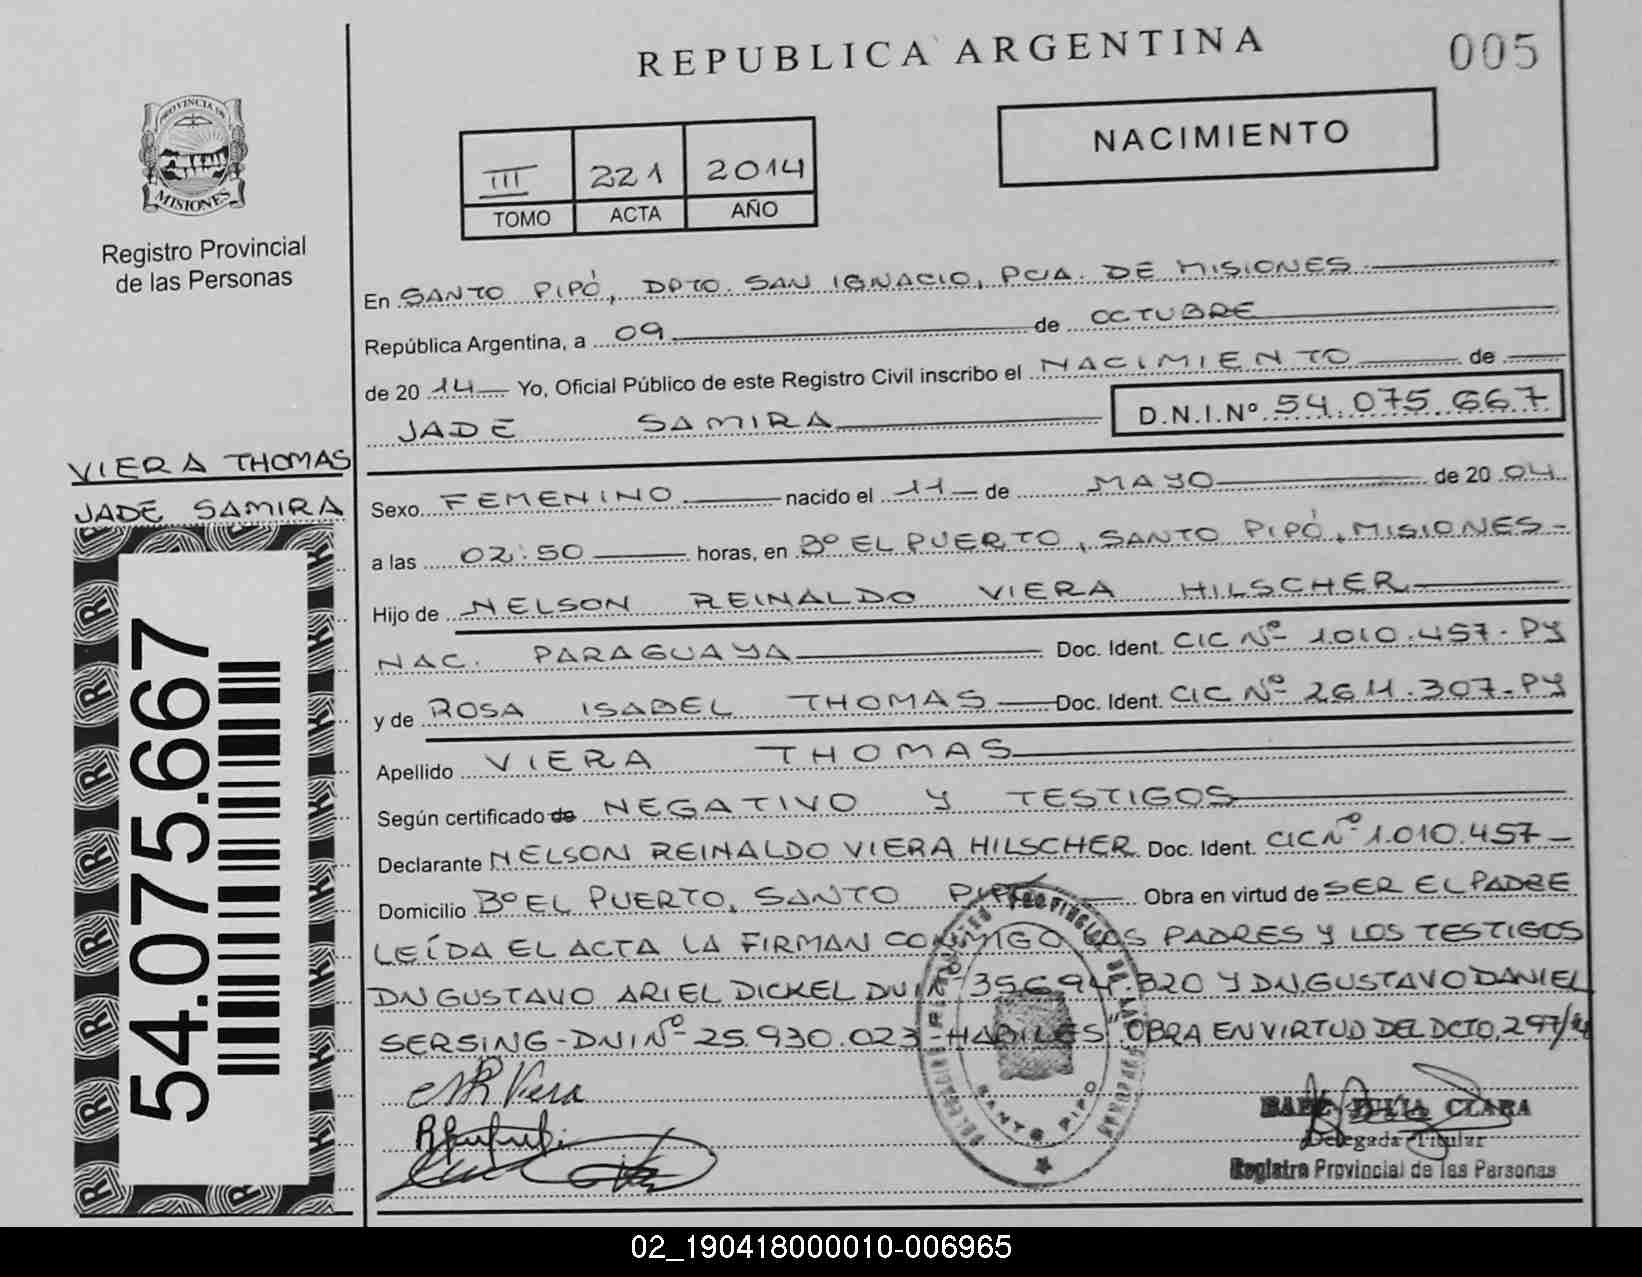 REPUBLICA ARGENTINA
005
PROVINCIA DE
MISIONES
Registro Provincial
de las Personas
III 221 2014
TOMO ACTA AÑO
NACIMIENTO
En SANTO PIPÓ, DPTO. SAN IGNACIO, PCIA. DE MISIONES
República Argentina, a 09 de OCTUBRE
de 20 14 Yo, Oficial Público de este Registro Civil inscribo el NACIMIENTO de
JADE SAMIRA D.N.I.Nº 54.075.667
VIERA THOMAS
JADE SAMIRA
54.075.667
Sexo FEMENINO nacido el 11 de MAYO de 20 04
a las 02:50 horas, en Bº EL PUERTO, SANTO PIPÓ, MISIONES
Hijo de NELSON REINALDO VIERA HILSCHER
NAC. PARAGUAYA Doc. Ident. CIC Nº 1.010.457-PY
y de ROSA ISABEL THOMAS Doc. Ident. CIC Nº 2611.307-PY
Apellido VIERA THOMAS
Según certificado de NEGATIVO Y TESTIGOS
Declarante NELSON REINALDO VIERA HILSCHER Doc. Ident. CIC Nº 1.010.457
Domicilio Bº EL PUERTO, SANTO PIPÓ Obra en virtud de SER EL PADRE
LEÍDA EL ACTA LA FIRMAN CONMIGO LOS PADRES Y LOS TESTIGOS
DN GUSTAVO ARIEL DICKEL DNI Nº 35.694.320 Y DN. GUSTAVO DANIEL
SERSING-DNI Nº 25.930.023-HABILES "OBRA EN VIRTUD DEL DCTO. 297/
SANTO PIPO
JULIA CLARA
Delegada Titular
Registro Provincial de las Personas
02_190418000010-006965